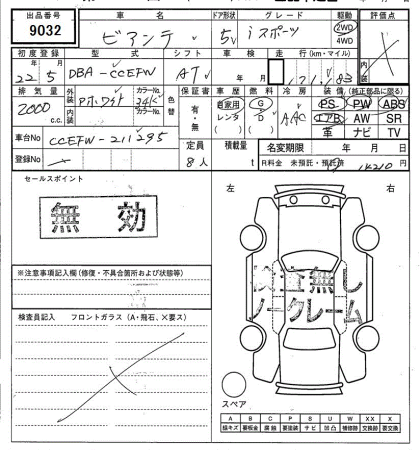 出品番号 車名 ドア形状 グレード 駆動 評価点
9032 ビアンテ 5V iスポーツ 2WD 4WD
初度登録 型式 シフト 車検 走行(km・マイル)
22年5月 DBA-CCEFW AT 年 月
排気量 外装 カラーNo. 色替 保証書 車歴 燃料 冷房 装備(純正部品に限る)
2000 c.c. Pホワイト 内装 カラーNo. 有・無 自家用 レンタ G D AAC PS PW ABS
エアB AW SR
車 ナビ TV
車台No CCEFW-211295 定員 8人 積載量 t 名変期限 年 月 日
登録No R料金 未預託・預託済
セールスポイント
無効
左 右
※注意事項記入欄(修復・不具合箇所および状態等)
検査無し
ノークレーム
検査員記入 フロントガラス(A・飛石、X要ス)
スペア
A B C P S U W X XX
線キズ 要板金 腐蝕 要塗装 サビ 凹凸 補修跡 交換跡 要交換